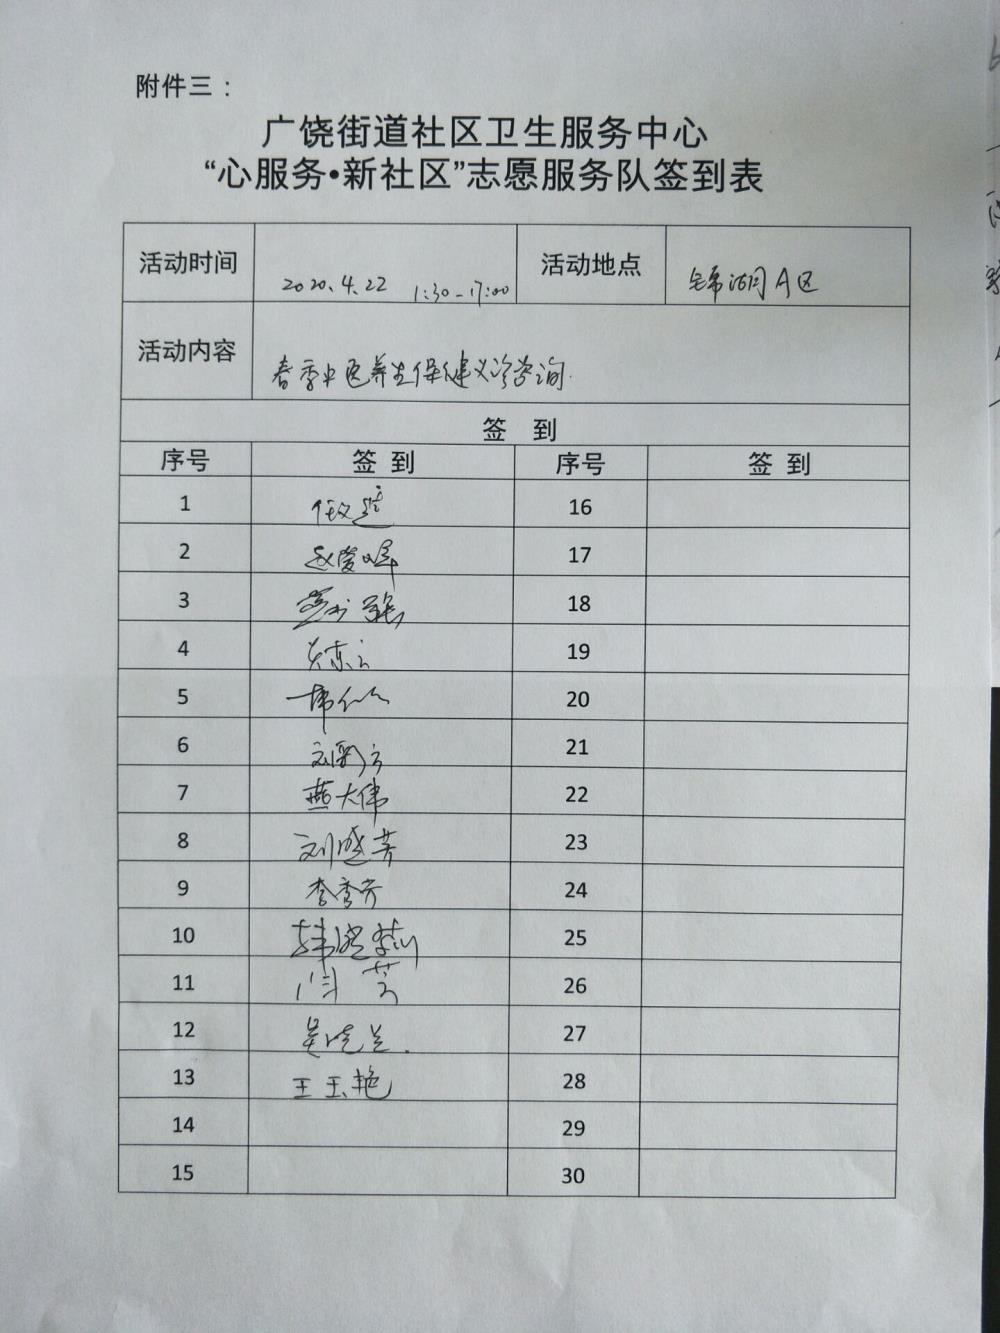 附件三：
广饶街道社区卫生服务中心
“心服务•新社区”志愿服务队签到表
活动时间 2020.4.22 1:30-17:00 活动地点 锦湖A区
活动内容 春季中医养生保健义诊咨询.
签 到
序号 签到 序号 签到
1 16
2 17
3 18
4 19
5 20
6 21
7 燕大伟 22
8 刘盛芳 23
9 李秀芳 24
10 25
11 闫芳 26
12 吴晓兰. 27
13 王玉艳 28
14 29
15 30